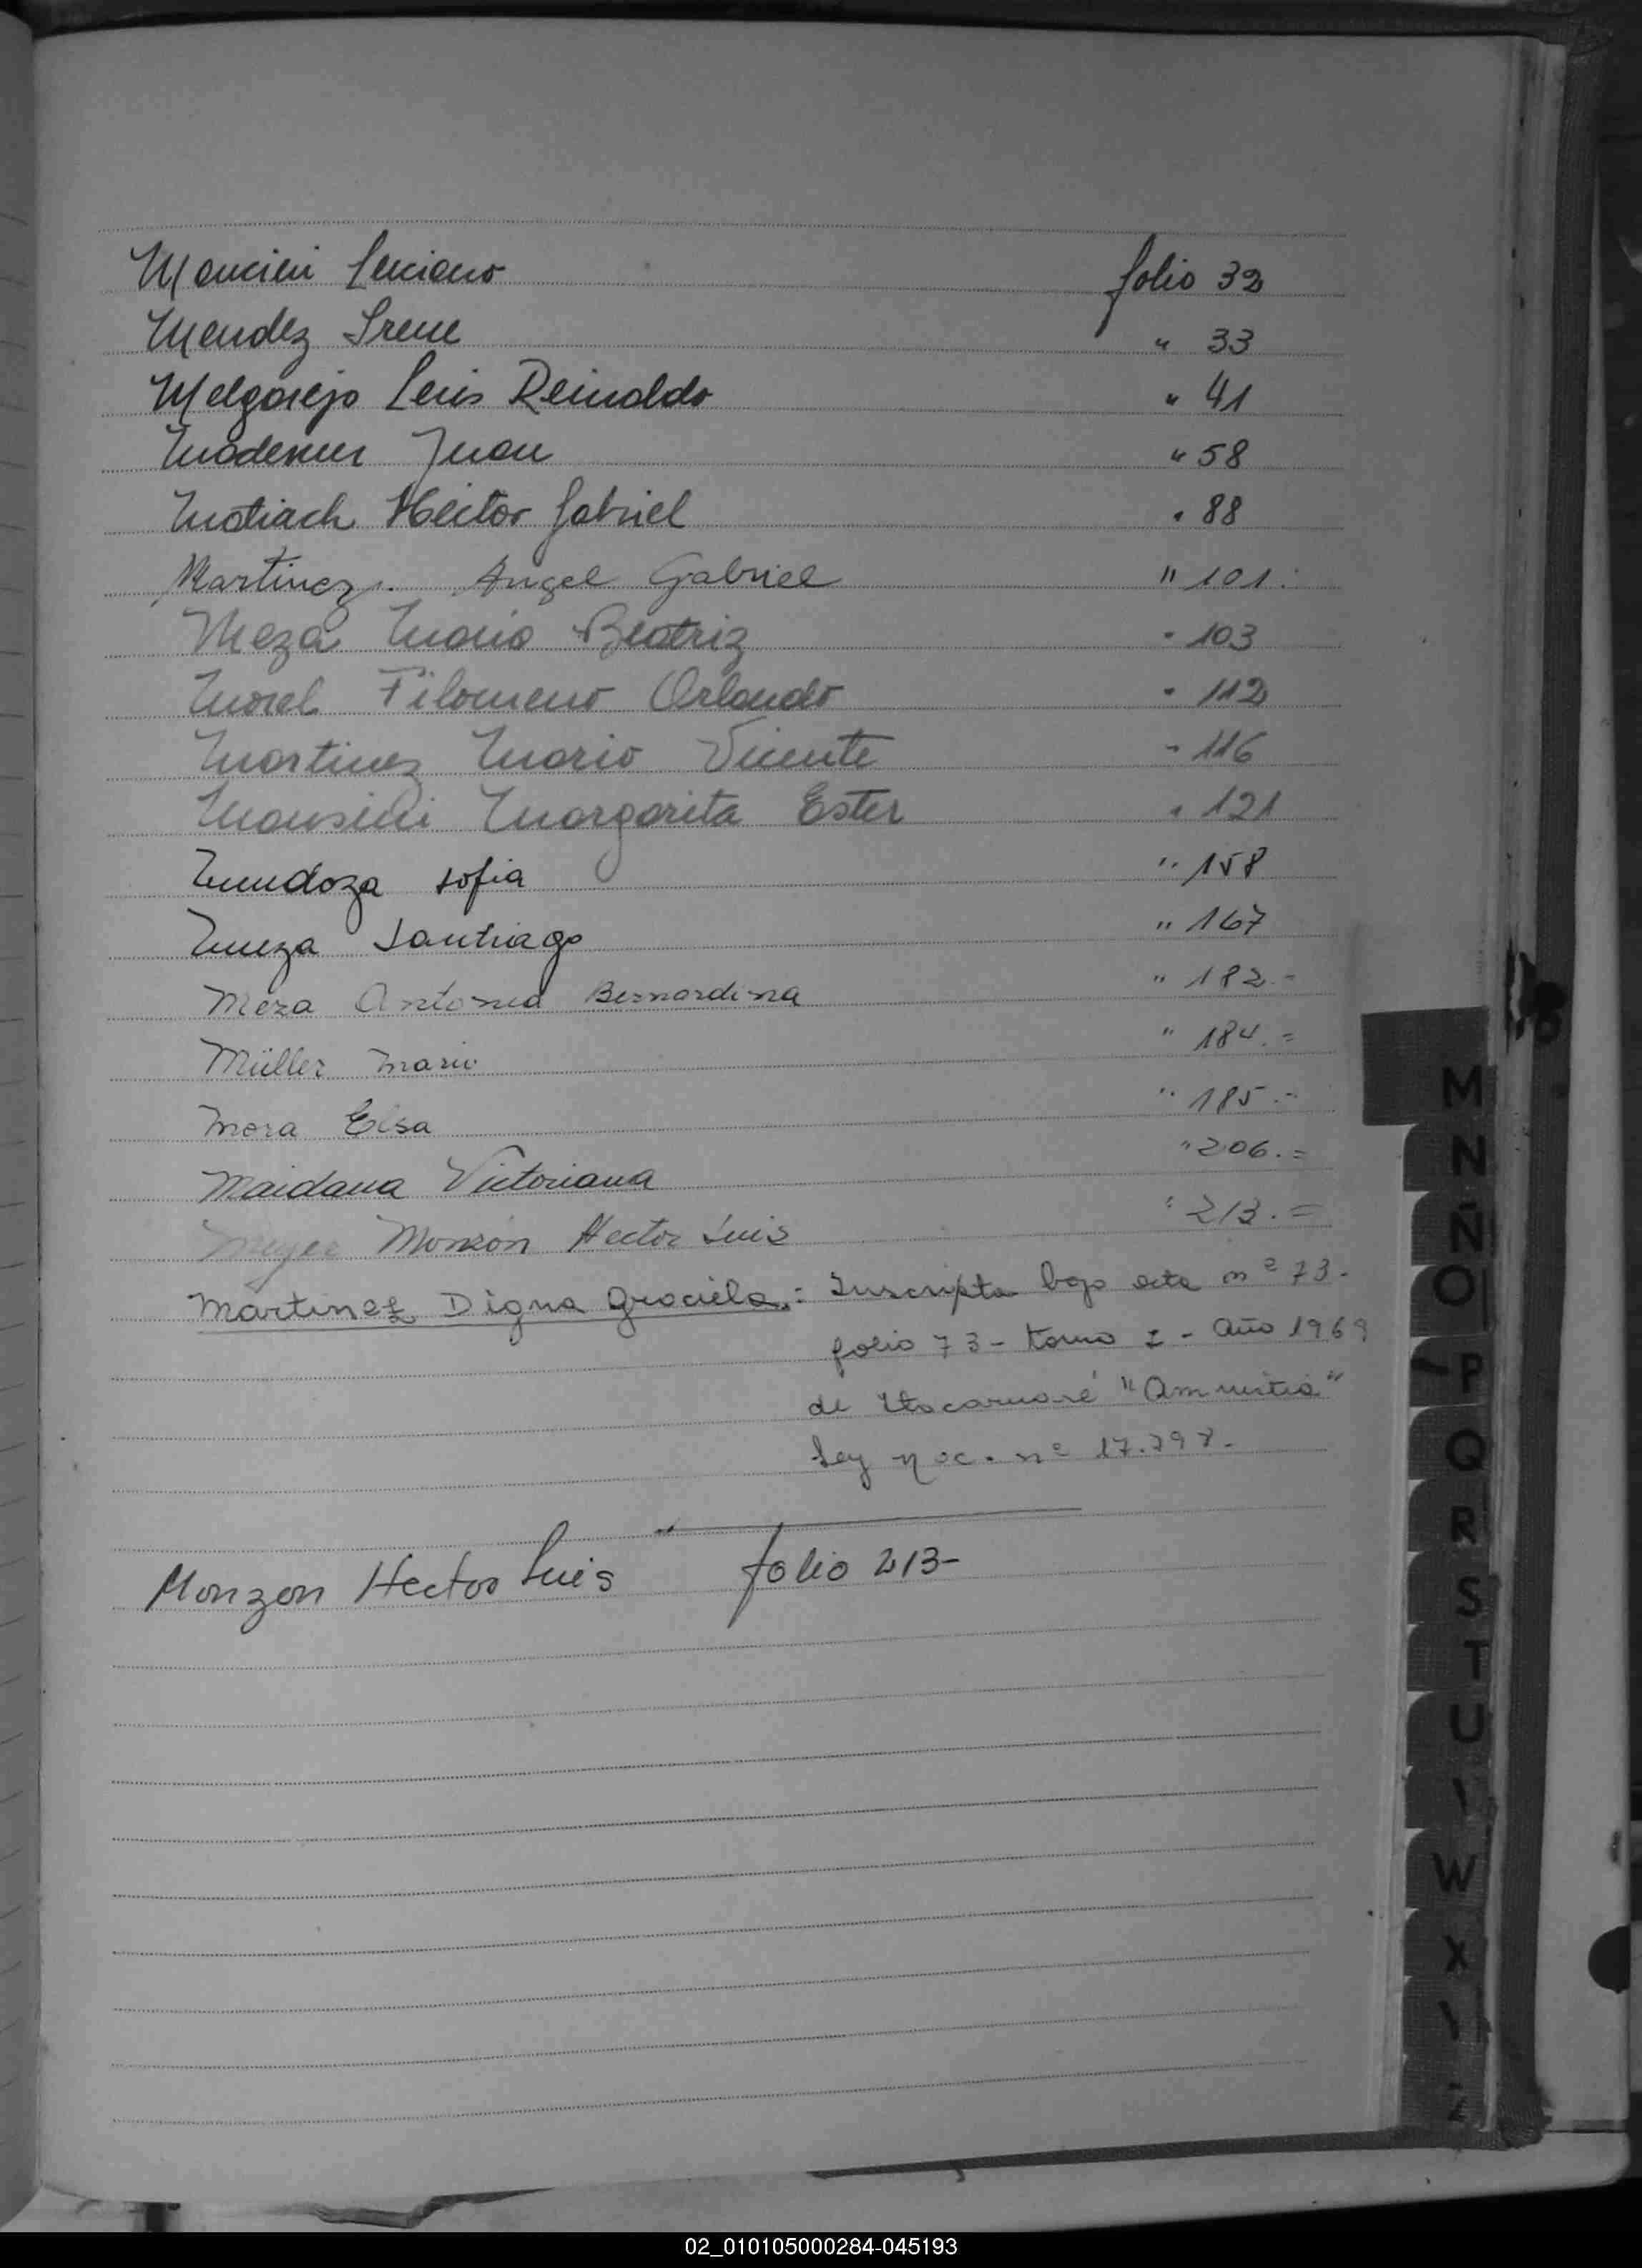 Mancini Luciano folio 32
Mendez Irene " 33
Melgarejo Luis Reinaldo " 41
Juan " 58
Matiach Héctor Gabriel " 88
Martinez. Angel Gabriel " 101.
Meza Maria Beatriz " 103
Morel Filomeno Orlando " 112
Martinez Mario Vicente " 116
Mansini Margarita Ester " 121
Mendoza Sofia " 158
Meza Santiago " 167
Meza Antonia Bernardina " 182.-
Müller Mario " 184.=
Mora Elsa " 185.-
Maidana Victoriana " 206.=
Monzón Hector Luis " 213.=
Martinez Digna Graciela.: Inscripta bajo acta nº 73.
folio 73 - tomo I - Año 1969
de Itacaruaré "Amnistia"
Ley nac. nº 17.798.-
Monzon Hector Luis folio 213-
M
N
Ñ
O
P
Q
R
S
T
U
W
X
Z
02_010105000284-045193